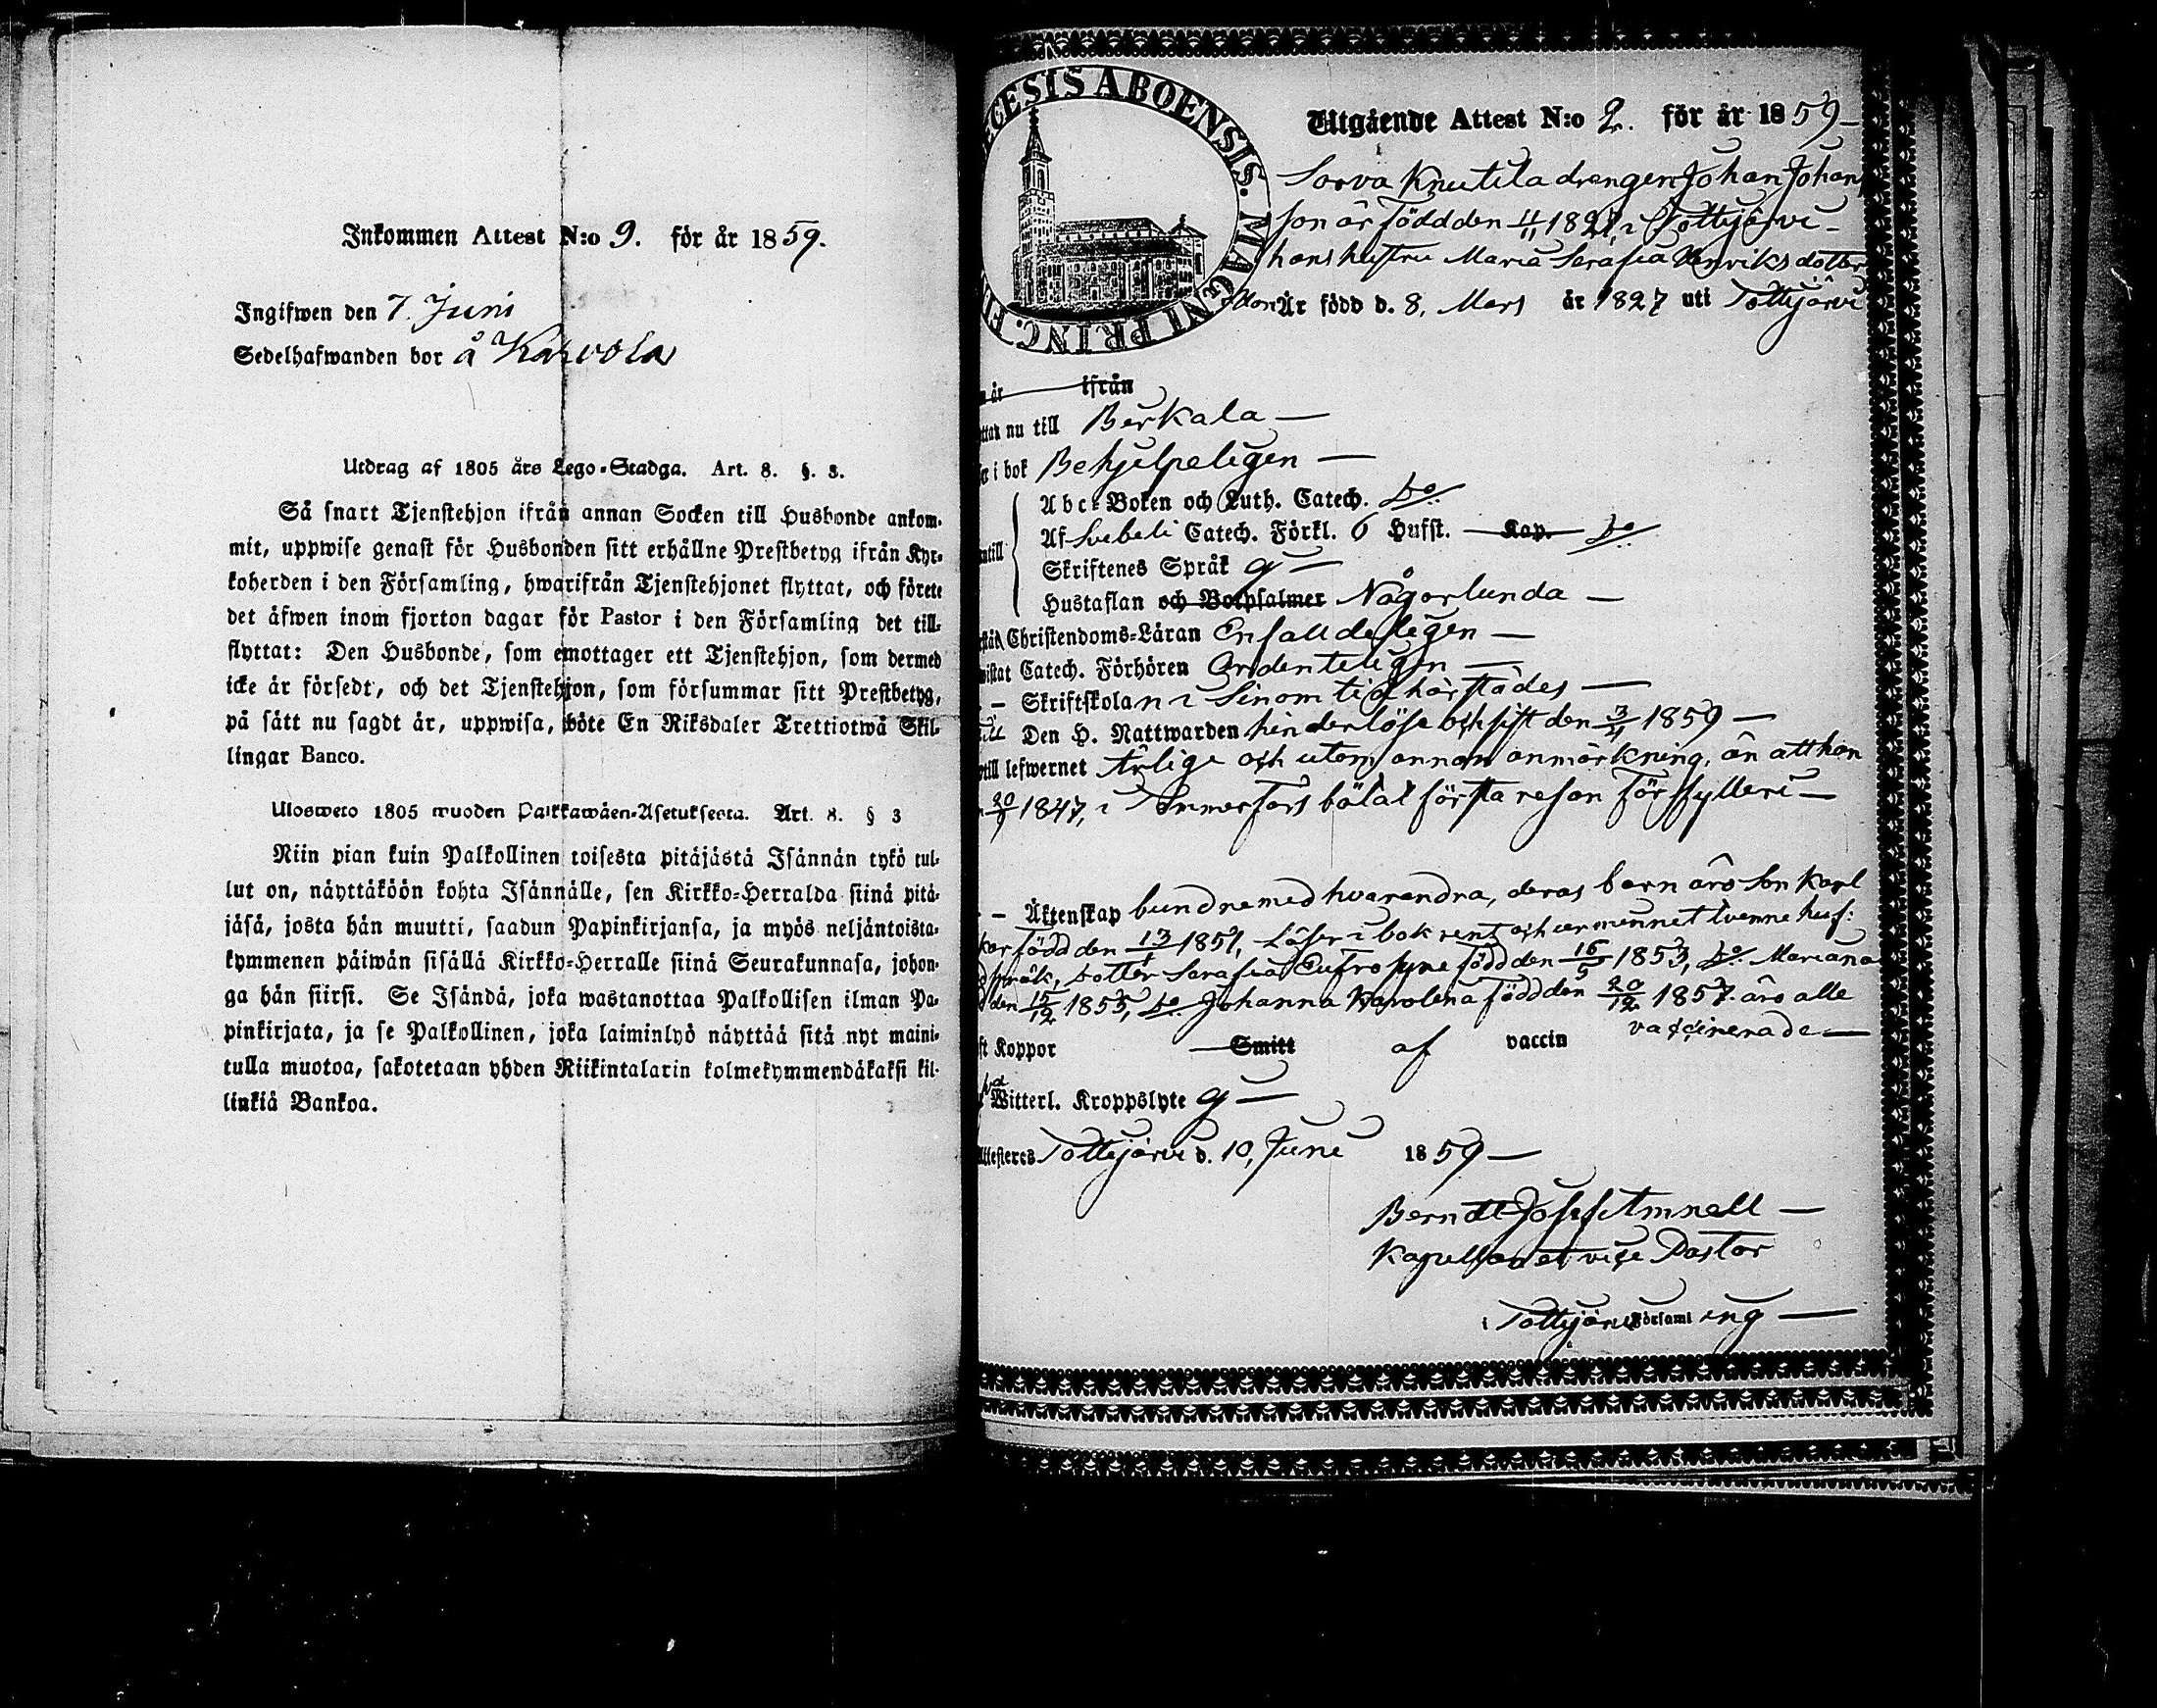 Inkommen Attest N:o 9. för år 1859.
Ingifwen den 7. Juni
Sedelhafwanden bor å Karvola
Utdrag af 1805 års Lego-Stadga. Art. 8. §. 3.
Så snart Tjenstehjon ifrån annan Socken till Husbonde ankom-
mit, uppwise genast för Husbonden sitt erhållne Prestbetyg ifrån Kyr-
koherden i den Församling, hwarifrån Tjenstehjonet flyttat, och förete
det äfwen inom fjorton dagar för Pastor i den Församling det till-
flyttat: Den Husbonde, som emottager ett Tjenstehjon, som dermed
icke är försedt, och det Tjenstehjon, som försummar sitt Prestbetyg,
på sätt nu sagdt är, uppwisa, böte En Riksdaler Trettiotwå Skil-
lingar Banco.
Ulosweto 1805 wuoden Palkkawäen-Asetuksesta. Art. 8. § 3
Niin pian kuin Palkollinen toisesta pitäjästä Isännän tykö tul-
lut on, näyttäköön kohta Isännälle, sen Kirkko-Herralda siinä pitä-
jäsä, josta hän muutti, saadun Papinkirjansa, ja myös neljäntoista-
kymmenen päiwän sisällä Kirkko-Herralle siinä Seurakunnasa, johon-
ga hän siirsi. Se Isändä, joka wastanottaa Palkollisen ilman Pa-
pinkirjata, ja se Palkollinen, joka laiminlyö näyttää sitä nyt maini-
tulla muotoa, sakotetaan yhden Riikintalarin kolmekymmendäkaksi kil-
linkiä Bankoa.
CESIS ABOENSIS. MAGNI PRINC. FI
Utgående Attest N:o 2. för år 1859
Sorva Knutila drengen Johan Johan
son är född den 11/11 1827, i Tottijärvi
hans hustru Maria Serafia Henriksdotter
Är född d. 8. Mars år 1827 uti Tottijärvi
är ifrån
nu till Berkala
i bok Behjelpeligen
Abc-Boken och Luth. Catech. Do
Af Svebeli Catech. Förkl. 6 Hufst. Kap. Do
Skriftenes Språk g
Hustaflan och Botpsalmer Någorlunda
Christendoms-Läran Enfaldeligen
Catech. Förhören Ordenteligen
Skriftskolan i sinom tid härstädes
Den H. Nattwarden hinderlöse och sist den 3/4 1859
till lefwernet Ärlige och utom annan anmärkning, än att han
1847, i Tammerfors bötat första resan för fylleri
Äktenskap bundne med hvarandra, deras barn äro son Karl
född den 13/1 1851, Läser i bok rent och ur minnet tvenne huf:
språk, dotter Serafia Eufrosyne född den 16/5 1853, Do Mariana
den 15/12 1855, Do Johanna Karolina född den 20/12 1857. äro alle
vaccinerade
Koppor Smitt af vaccin
Witterl. Kroppslyte g
Attesteres Tottijärvi d. 10, Juni 1859
Berndt Josef Amnell
Kapellan et vice Pastor
i Tottijärvi Församling